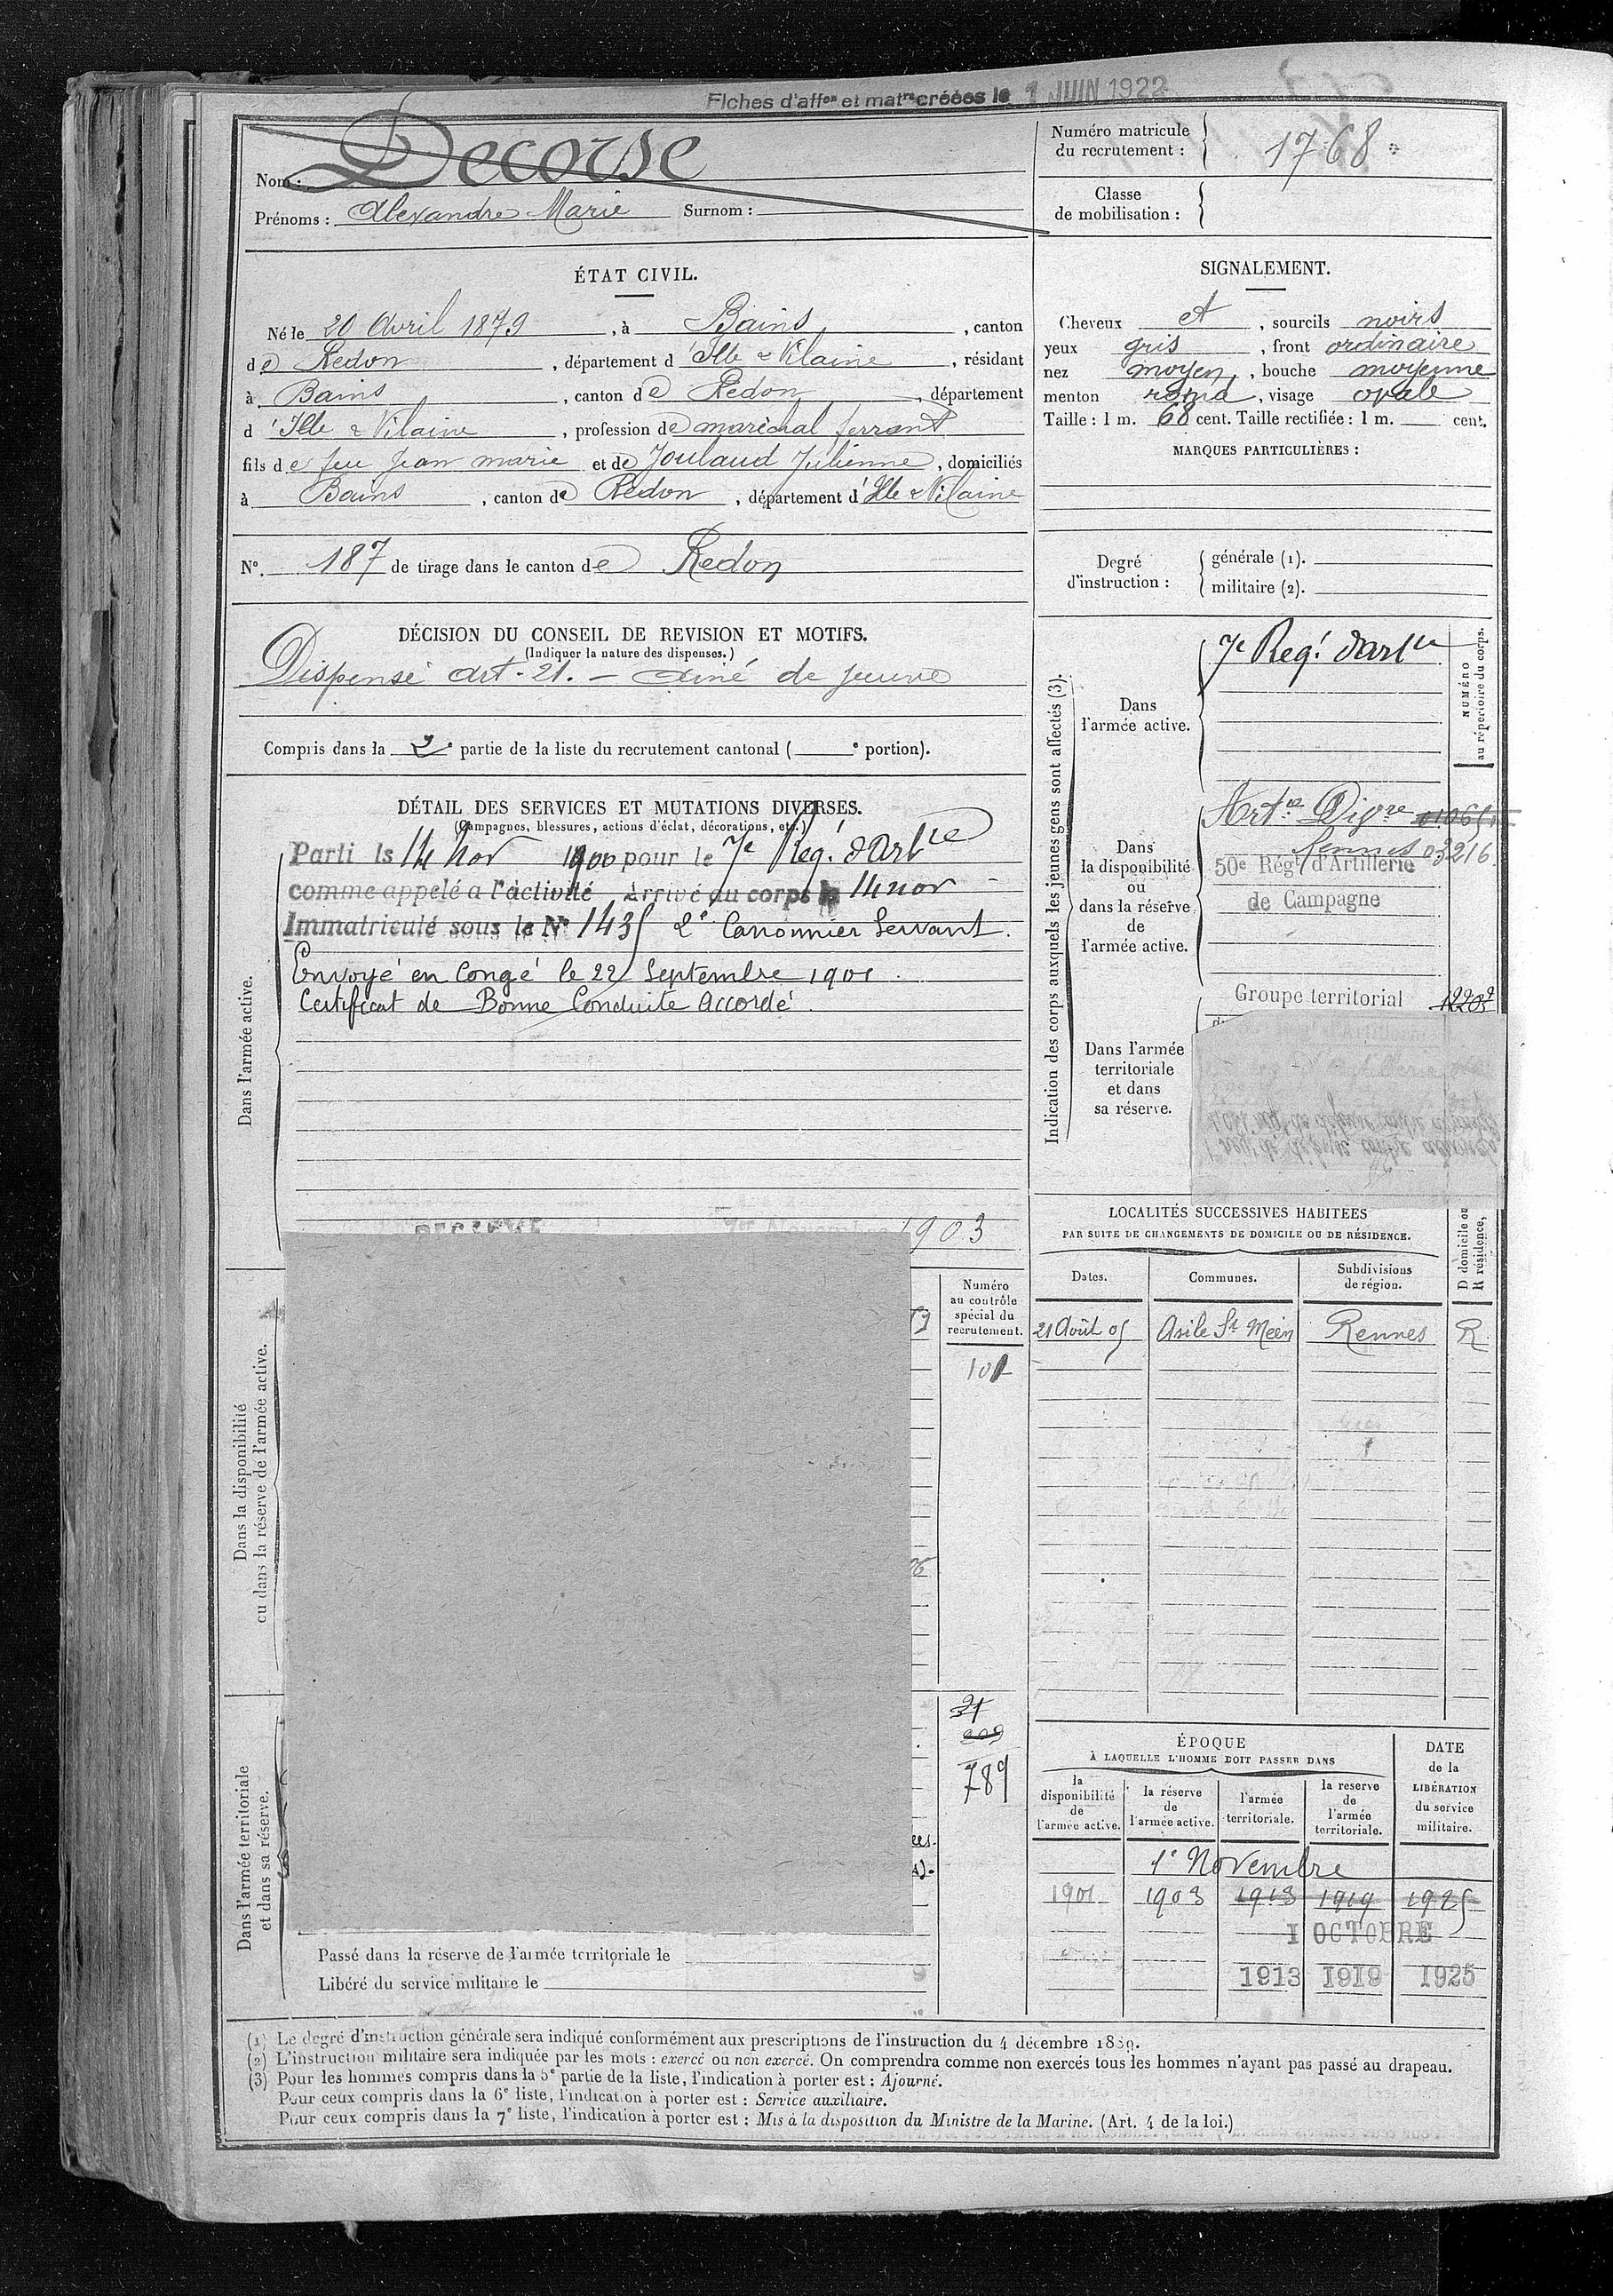 Fiches d'aff^on et mat^re créées le 1 JUIN 1922
Nom : Decorse
Prénoms : Alexandre Marie Surnom :
Numéro matricule
du recrutement : 1768
Classe
de mobilisation :
ÉTAT CIVIL.
Né le 20 Avril 1879, à Bains, canton
de Redon, département d'Ille & Vilaine, résidant
à Bains, canton de Redon, département
d'Ille & Vilaine, profession de maréchal ferrant
fils de feu Jean marie et de Joulaud Julienne, domiciliés
à Bains, canton de Redon, département d'Ille & Vilaine
N°. 187 de tirage dans le canton de Redon
SIGNALEMENT.
Cheveux et, sourcils noirs
yeux gris, front ordinaire
nez moyen, bouche moyenne
menton rond, visage ovale
Taille : 1 m. 68 cent. Taille rectifiée : 1 m. cent.
MARQUES PARTICULIÈRES :
Degré
d'instruction :
générale (1).
militaire (2).
DÉCISION DU CONSEIL DE REVISION ET MOTIFS.
(Indiquer la nature des dispenses.)
Dispensé art. 21. - ainé de
Compris dans la 2e partie de la liste du recrutement cantonal ( e portion).
DÉTAIL DES SERVICES ET MUTATIONS DIVERSES.
(Campagnes, blessures, actions d'éclat, décorations, etc.)
Dans l'armée active.
Parti le 14 nov 1900 pour le 7e Reg. d'Art^ie
comme appelé a l'activité Arrivé au corps le 14 nov
Immatriculé sous le N° 1435 2e Canonnier Servant.
Envoyé en Congé le 22 Septembre 1901.
Certificat de Bonne Conduite Accordé.
1903
Indication des corps auxquels les jeunes gens sont affectés (3).
NUMÉRO
au répertoire du corps.
Dans
l'armée active.
7e Reg.t d'art^ie
Dans
la disponibilité
ou
dans la réserve
de
l'armée active.
Art^ie Dig^re
Rennes 03216
50e Régt d'Artillerie
de Campagne
Groupe territorial
Dans l'armée
territoriale
et dans
sa réserve.
LOCALITÉS SUCCESSIVES HABITEES
PAR SUITE DE CHANGEMENTS DE DOMICILE OU DE RÉSIDENCE.
Dates. Communes. Subdivisions
de région.
D domicile ou
R résidence,
21 Août 05 Asile St Méen Rennes R
Dans la disponibilité
ou dans la réserve de l'armée active.
Numéro
au contrôle
spécial du
recrutement.
Dans l'armée territoriale
et dans sa réserve.
789
Passé dans la réserve de l'armée territoriale le
Libéré du service militaire le
ÉPOQUE
À LAQUELLE L'HOMME DOIT PASSER DANS
la
disponibilité
de
l'armée active.
la réserve
de
l'armée active.
l'armée
territoriale.
la reserve
de
l'armée
territoriale.
DATE
de la
LIBÉRATION
du service
militaire.
1e Novembre
1901 1903 1913 1919 1925
I OCTOBRE
1913 1919 1925
(1) Le degré d'instruction générale sera indiqué conformément aux prescriptions de l'instruction du 4 décembre 1889.
(2) L'instruction militaire sera indiquée par les mots : exercé ou non exercé. On comprendra comme non exercés tous les hommes n'ayant pas passé au drapeau.
(3) Pour les hommes compris dans la 5e partie de la liste, l'indication à porter est : Ajourné.
Pour ceux compris dans la 6e liste, l'indication à porter est : Service auxiliaire.
Pour ceux compris dans la 7e liste, l'indication à porter est : Mis à la disposition du Ministre de la Marine. (Art. 4 de la loi.)